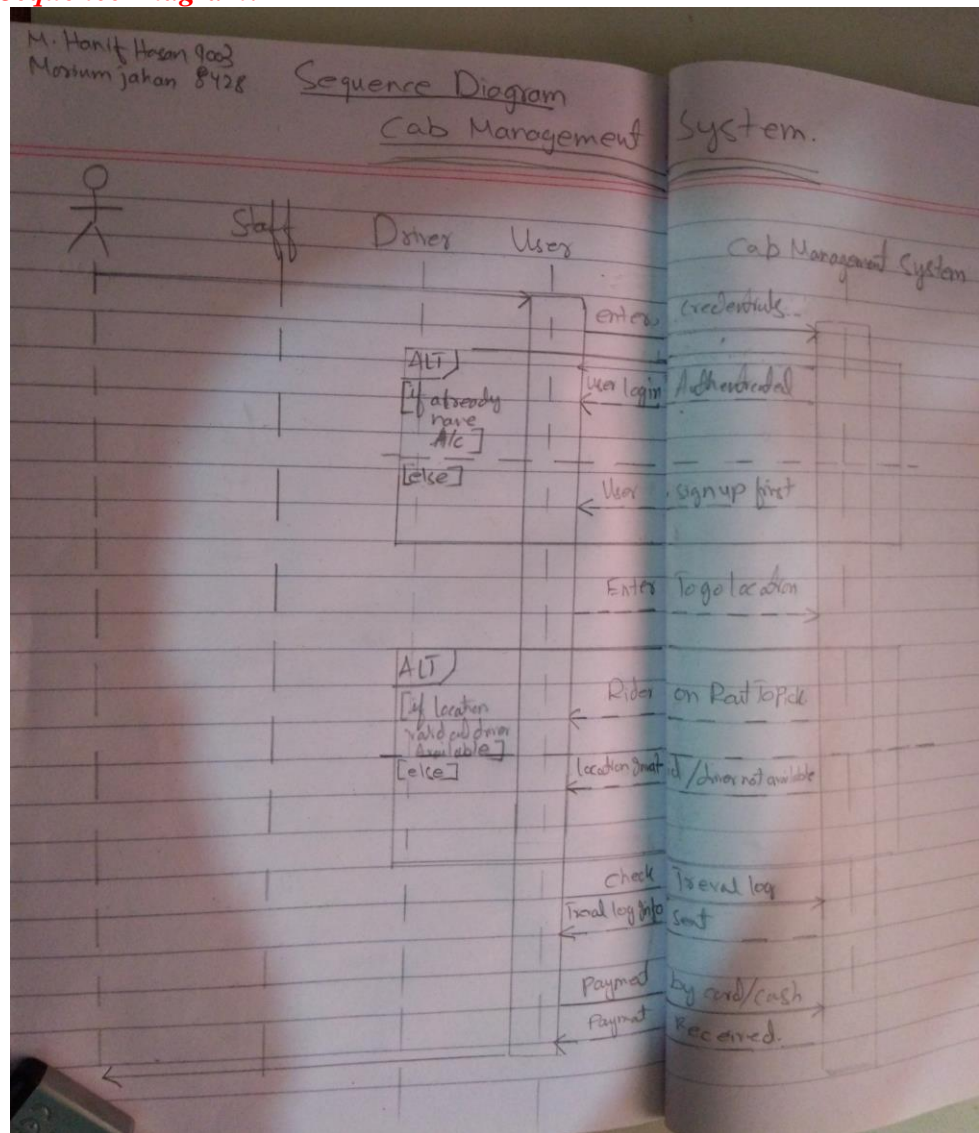 M. Hanif Hasan 9003
Morium jahan 8428
Sequence Diagram
Cab Management System.
Staff
Driver
User
Cab Management System
enter credentials
ALT
[if already have A/c]
User login Authenticated
[else]
User signup first
Enter To go location
ALT
[if location valid driver Available]
Rider on
[else]
location / driver not available
Check Treval log
log info sent
Payment by card/cash
Paymat Received.